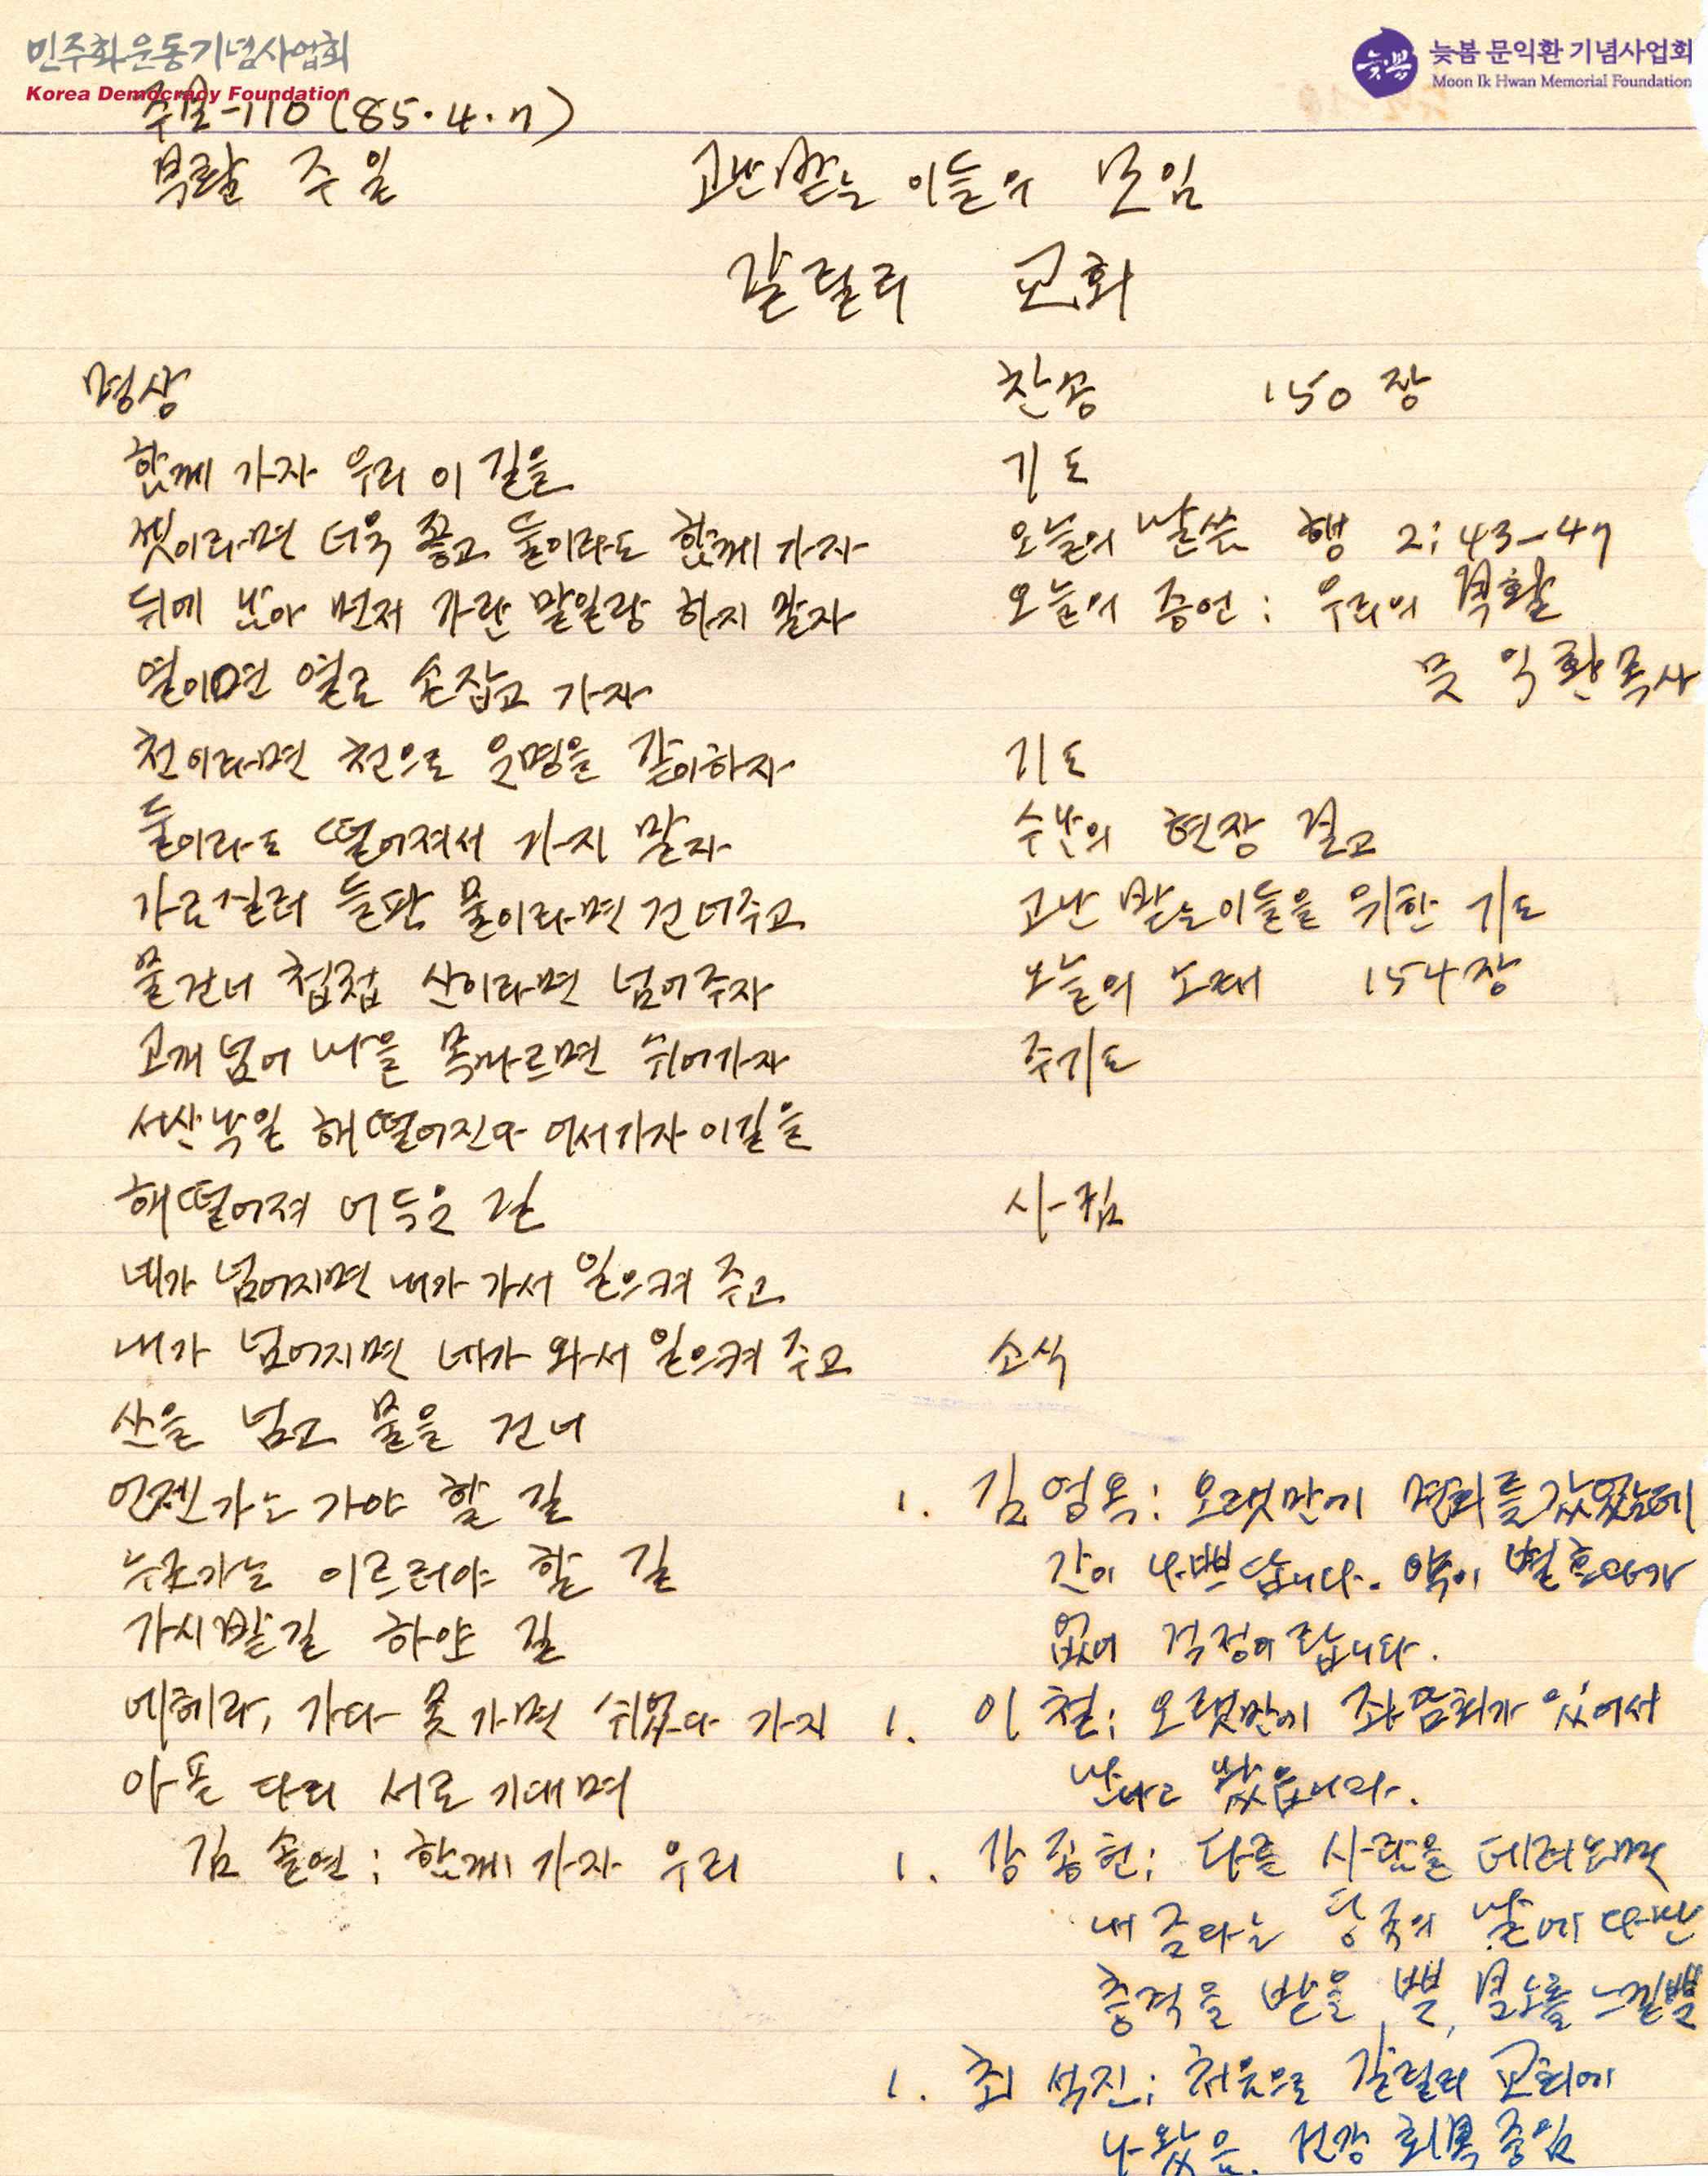 민주화운동기념사업회
Korea Democracy Foundation
늦봄
늦봄 문익환 기념사업회
Moon Ik Hwan Memorial Foundation
수呈-110 (85.4.7)
부활 주일
고난받는 이들의 모임
갈릴리 교회
명상
함께 가자 우리 이 길을
셋이라면 더욱 좋고 둘이라도 함께 가자
뒤에 남아 먼저 가란 말일랑 하지 말자
열이면 열로 손잡고 가자
천이라면 천으로 운명을 같이하자
둘이라도 떨어져서 가지 말자
가로질러 들판 물이라면 건너주고
물건너 첩첩 산이라면 넘어주자
고개넘어 마을 목마르면 쉬어가자
서산낙일 해떨어진다 어서가자 이길을
해떨어져 어두운 길
네가 넘어지면 내가 가서 일으켜 주고
내가 넘어지면 네가 와서 일으켜 주고
산을 넘고 물을 건너
언젠가는 가야 할 길
누군가는 이르러야 할 길
가시밭길 하얀 길
에헤라, 가다 못가면 쉬었다 가지
아픈 다리 서로 기대며
김 솔연 : 함께 가자 우리
찬송 150 장
기도
오늘의 말씀 행 2 : 43-47
오늘의 증언 : 우리의 부활
문 익환 목사
기도
수난의 현장 보고
고난 받는이들을 위한 기도
오늘의 노래 154장
주기도
사귐
소식
1. 김 영옥 : 오랫만에 면회를 갔었는데
간이 나쁘답니다. 약이 별효과가
없어 걱정이랍니다.
1. 이 철 : 오랫만에 좌담회가 있어서
만나고 왔습니다.
1. 강 종헌 : 다른 사람을 데려오면
내 준다는 당국의 말에 다만
충격을 받을 뿐, 분노를 느낄뿐
1. 최 석진 : 처음으로 갈릴리 교회에
나왔음. 건강 회복 중임